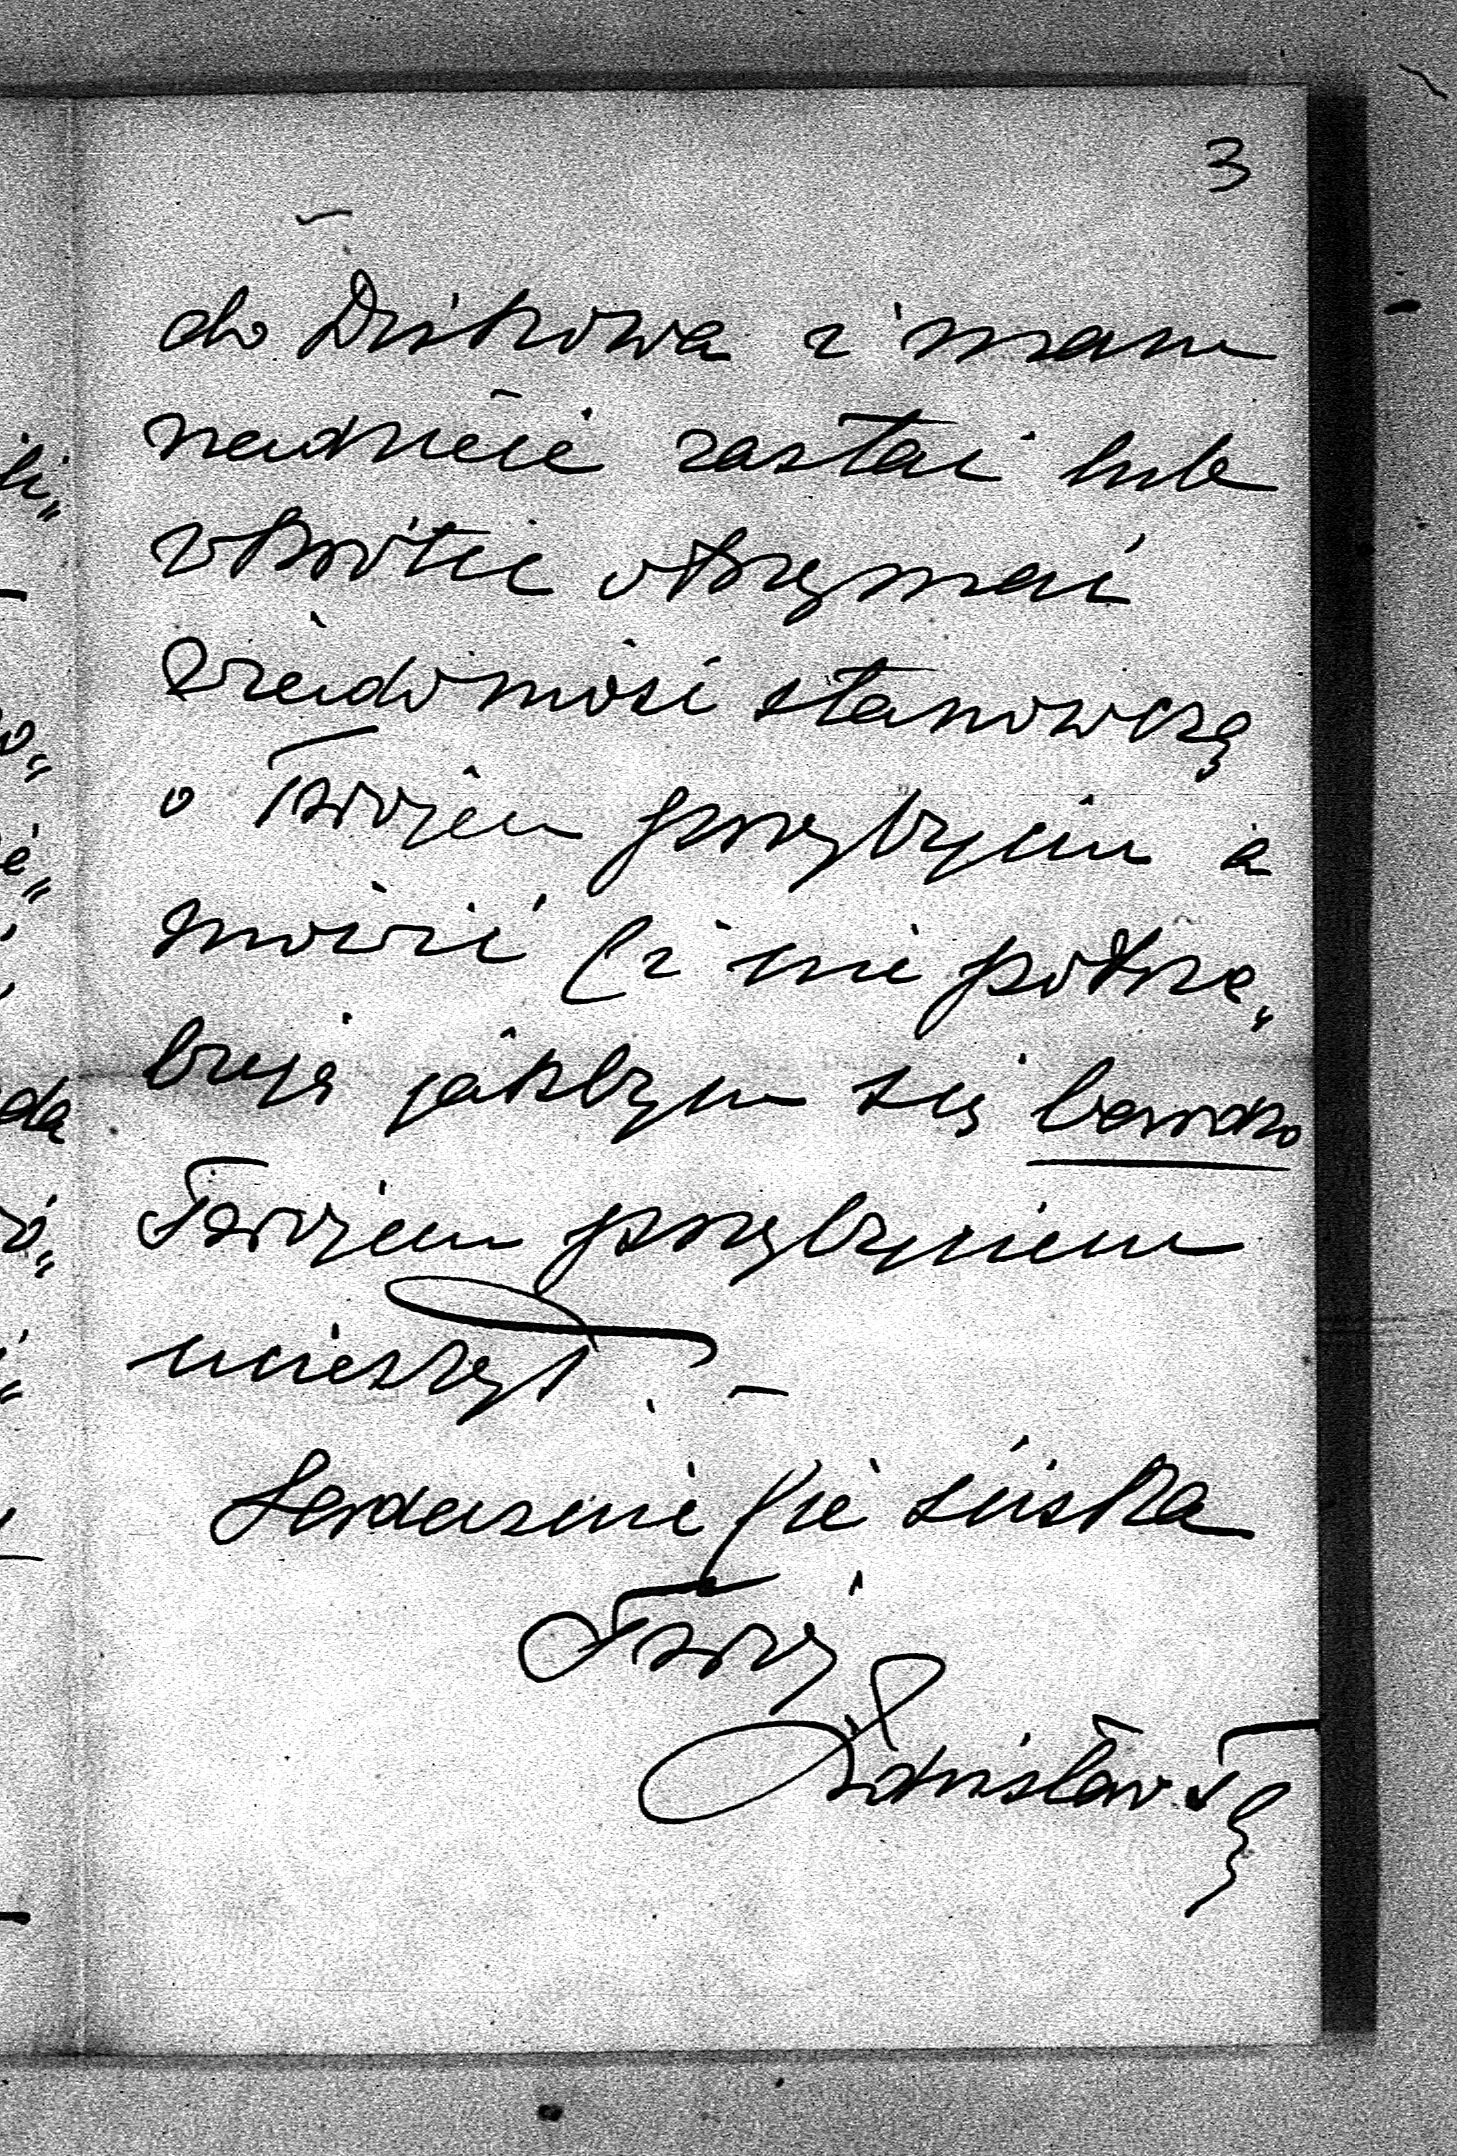 3
do Dzikowa i mam
nadzieję zastać lub
wkrótce otrzymać
wiadomość stanowczą
o Twojem przybyciu a
mówić Ci nie potrze„
buję jakbym się bardzo
Twojem przybyciem
ucieszył. —
Serdecznie Cię ściska
Twój
Zdzisław T